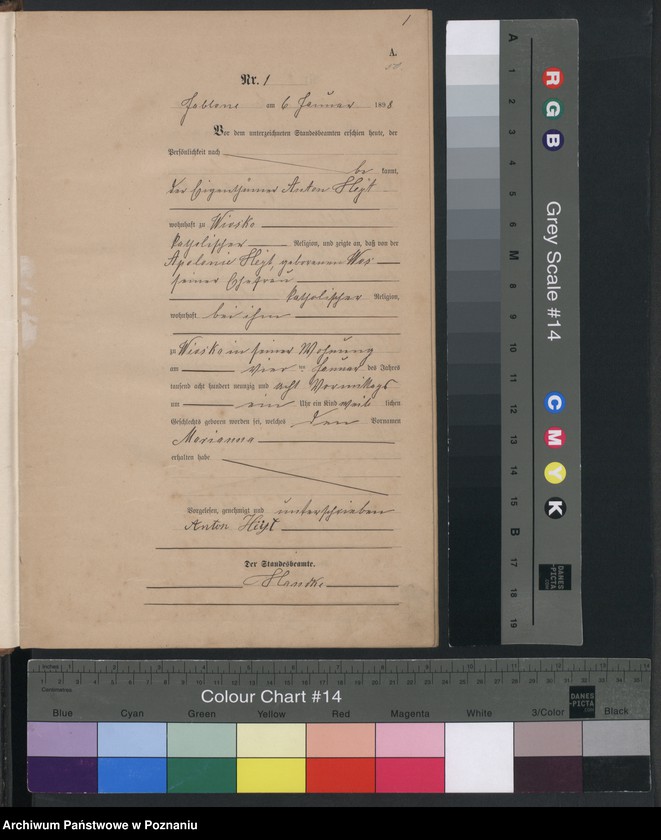 1
A.
Nr. 1
Jablone am 6 Januar 1898
Vor dem unterzeichneten Standesbeamten erschien heute, der
Persönlichkeit nach
be kannt,
der Eigenthümer Anton Heyt
wohnhaft zu Wiosko
katholischer Religion, und zeigte an, daß von der
Apolonie Heyt, geborenen Wos
seiner Ehefrau
katholischer Religion,
wohnhaft bei ihm
zu Wiosko in seiner Wohnung
am vier ten Januar des Jahres
tausend acht hundert neunzig und acht Vormittags
um ein Uhr ein Kind weib lichen
Geschlechts geboren worden sei, welches den Vornamen
Marianna
erhalten habe
Vorgelesen, genehmigt und unterschrieben
Anton Heyt
Der Standesbeamte.
A
1
2
3
4
5
6
M
8
9
10
11
12
13
14
15
B
17
18
19
R
G
B
Grey Scale #14
C
M
Y
K
DANES
-PICTA
.COM
Inches 1 2 3 4 5 6 7 8 9 10 11 12 13 14
Centimetres 1 2 3 4 5 6 7 8 9 10 11 12 13 14 15 16 17 18 19 20 21 22 23 24 25 26 27 28 29 30 31 32 33 34 35
Colour Chart #14
DANES
-PICTA
.COM
Blue Cyan Green Yellow Red Magenta White 3/Color Black
Archiwum Państwowe w Poznaniu